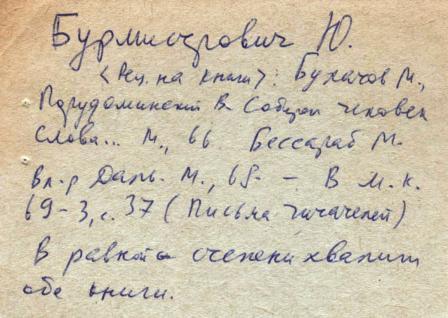 Бурмистрович Ю.
<Рец. на книги>: Булатов М.,
Порудоминский В. Собирал человек
слова... М., 66. Бессараб М.
Вл-р Даль. М., 68. – В м. к.
69-3, с. 37 (Письма читателей)
В равной степени хвалит
обе книги.